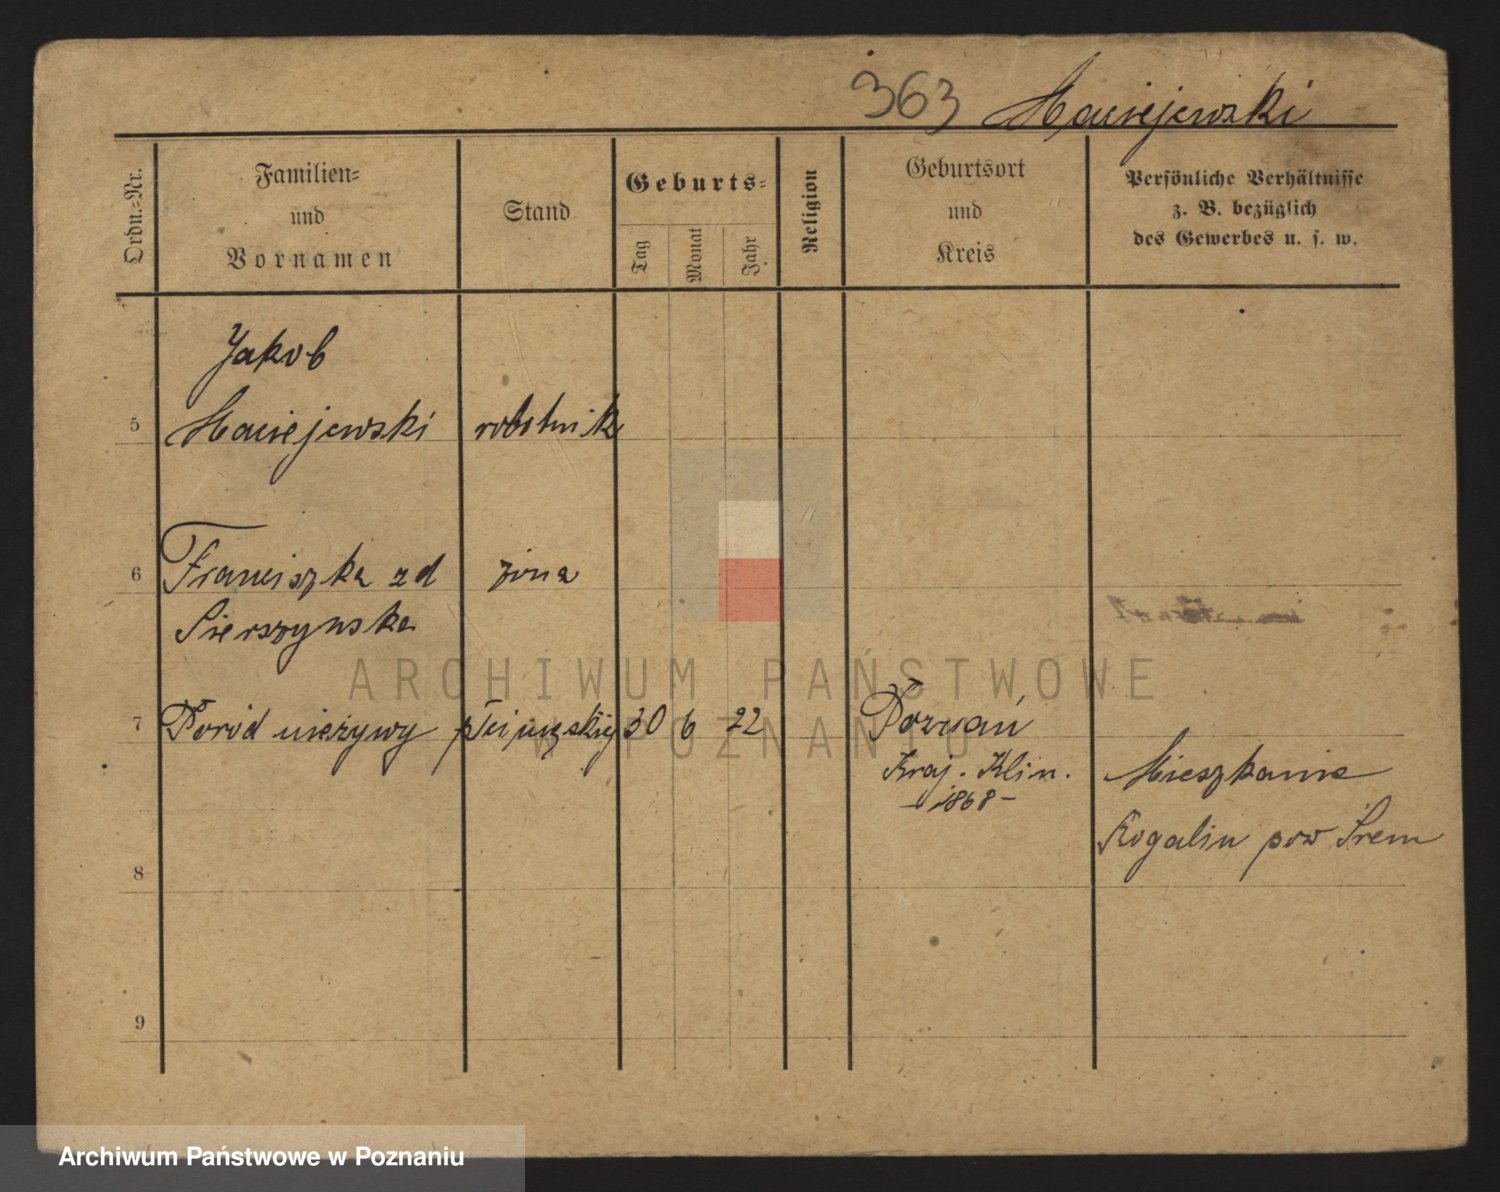 363 Maciejewski
Ordn.-Nr.
Familien-
und
Vornamen
Stand
Geburts-
Tag
Monat
Jahr
Religion
Geburtsort
und
Kreis
Persönliche Verhältnisse
z. B. bezüglich
des Gewerbes u. s. w.
Jakob
5 Maciejewski robotnik
6 Franciszka zd żona
Sierszynska
7 Poród nieżywy płci męskiej 30 6 22 Poznań
Kraj. Klin. Mieszkanie
-1868-
Rogalin pow Śrem
8
9
ARCHIWUM PAŃSTWOWE
W POZNANIU
Archiwum Państwowe w Poznaniu